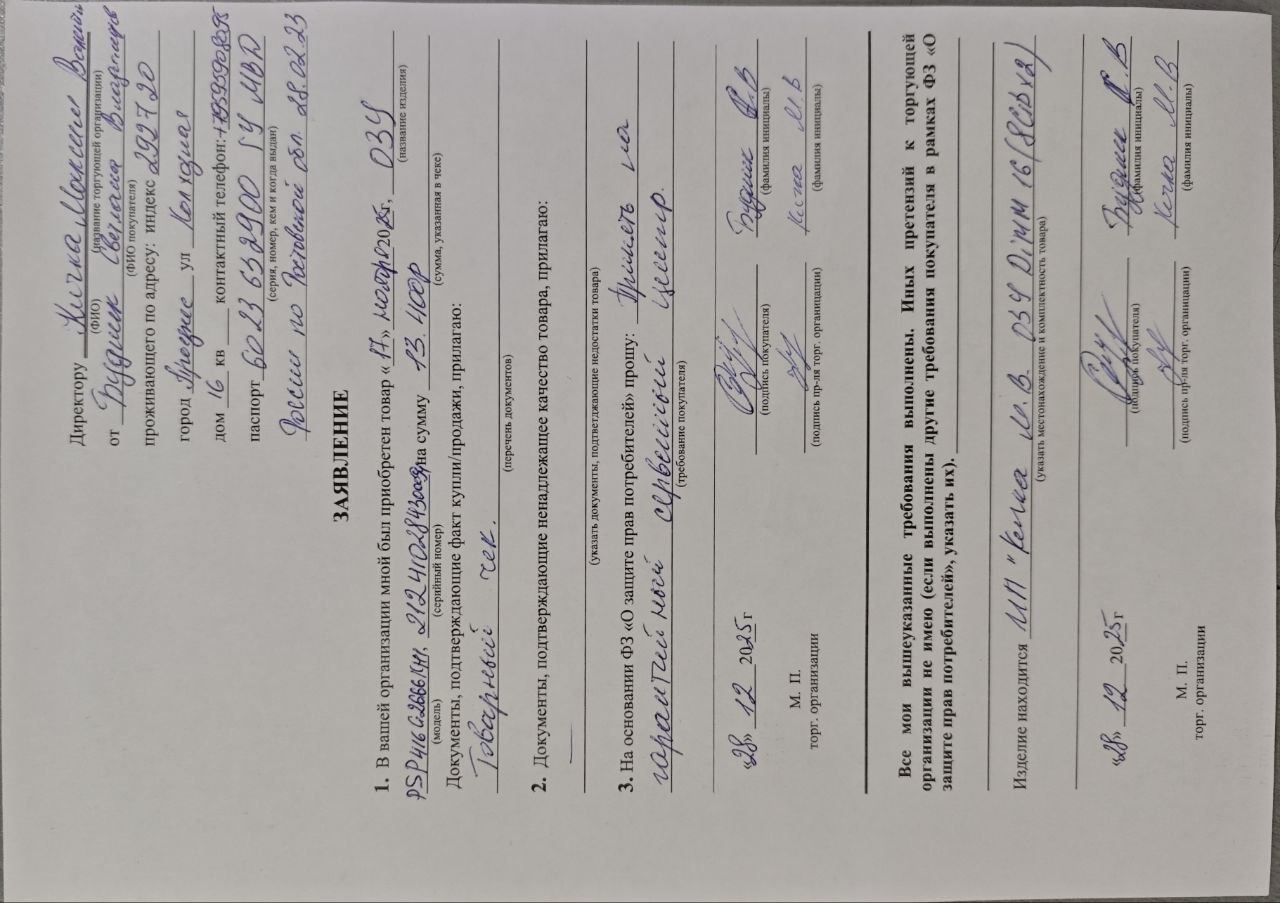 Директору Кичка Максим Вадим
(ФИО) (название торгующей организации)
от Будник Светлана Владимиров
(ФИО покупателя)
проживающего по адресу: индекс 299720
город ул Колхозная
дом 16 кв контактный телефон:
паспорт 6023 632900 ГУ МВД
(серия, номер, кем и когда выдан)
России по Ростовской обл. 28.02.23
ЗАЯВЛЕНИЕ
1. В вашей организации мной был приобретен товар «17» ноября 2025г, ОЗУ
(название изделия)
на сумму 13.400р
(модель) (серийный номер) (сумма, указанная в чеке)
Документы, подтверждающие факт купли/продажи, прилагаю:
Товарный чек.
(перечень документов)
2. Документы, подтверждающие ненадлежащее качество товара, прилагаю:
(указать документы, подтветджающие недостатки товара)
3. На основании ФЗ «О защите прав потребителей» прошу: Принять на
гарантийный сервисный центр.
(требование покупателя)
«28» 12 2025г Будник С.В
(подпись покупателя) (фамилия инициалы)
М. П. Кичка М.В
торг. организации (подпись пр-ля торг. организации) (фамилия инициалы)
Все мои вышеуказанные требования выполнены. Иных претензий к торгующей
организации не имею (если выполнены другие требования покупателя в рамках ФЗ «О
защите прав потребителей», указать их).
Изделие находится ИП "Кичка М.В. ОЗУ DIMM 16(8GBx2)
(указать местонахождение и комплектность товара)
«28» 12 2025г Будник С.В
(подпись покупателя) (фамилия инициалы)
М. П. Кичка М.В
торг. организации (подпись пр-ля торг. организации) (фамилия инициалы)